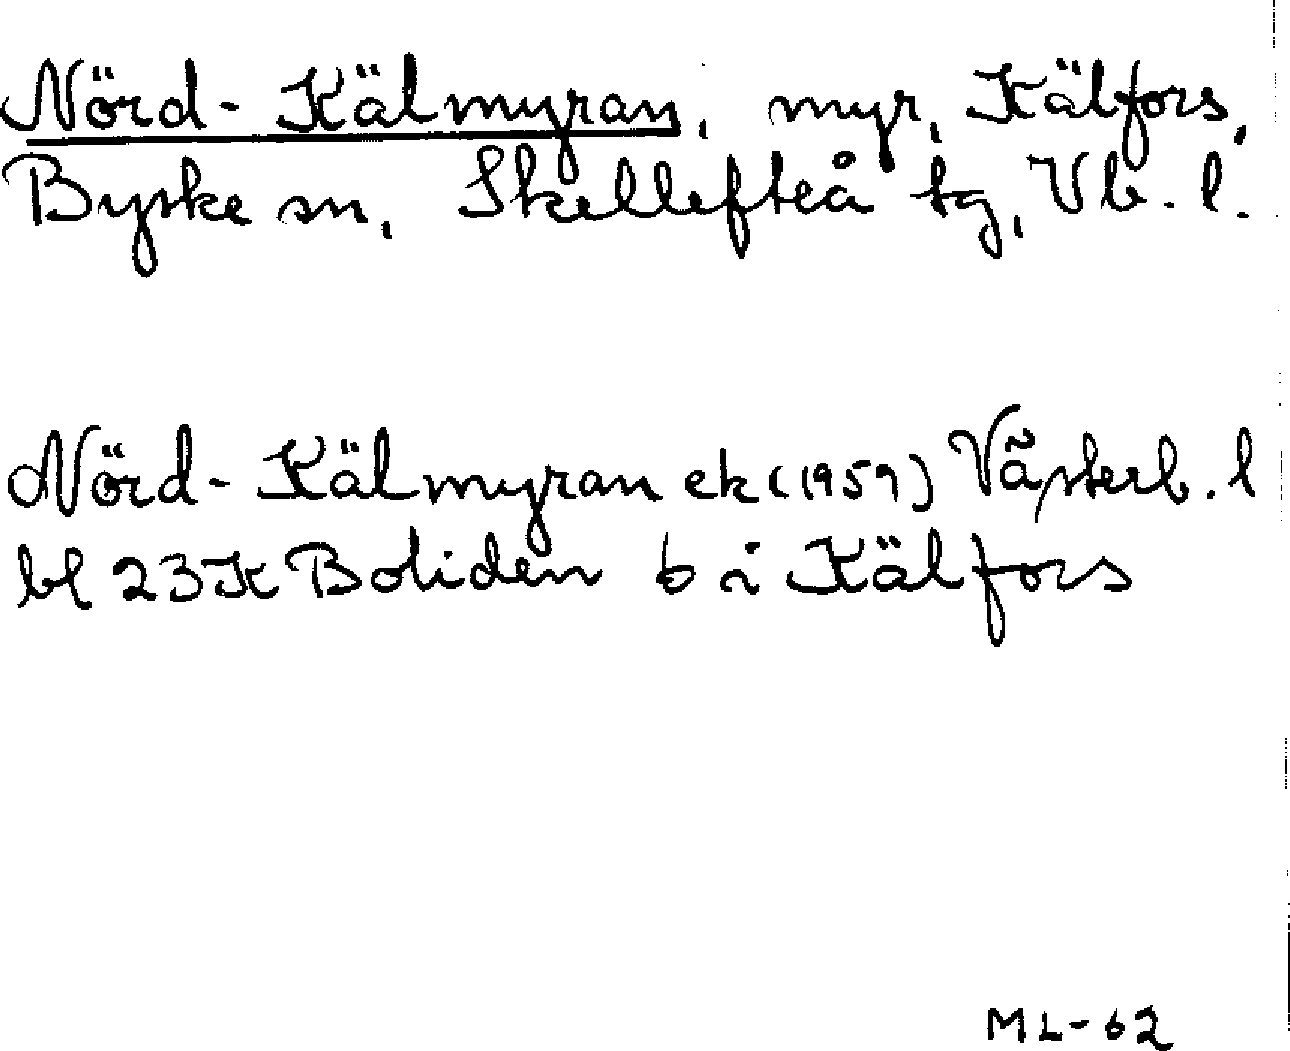 Nörd-Kälmyran, myr, Kälfors,
Byske sn, Skellefteå tg, Vb. l.
Nörd-Kälmyran ek (1959) Västerb. l
bl 23K Boliden b i Kälfors
ML-62